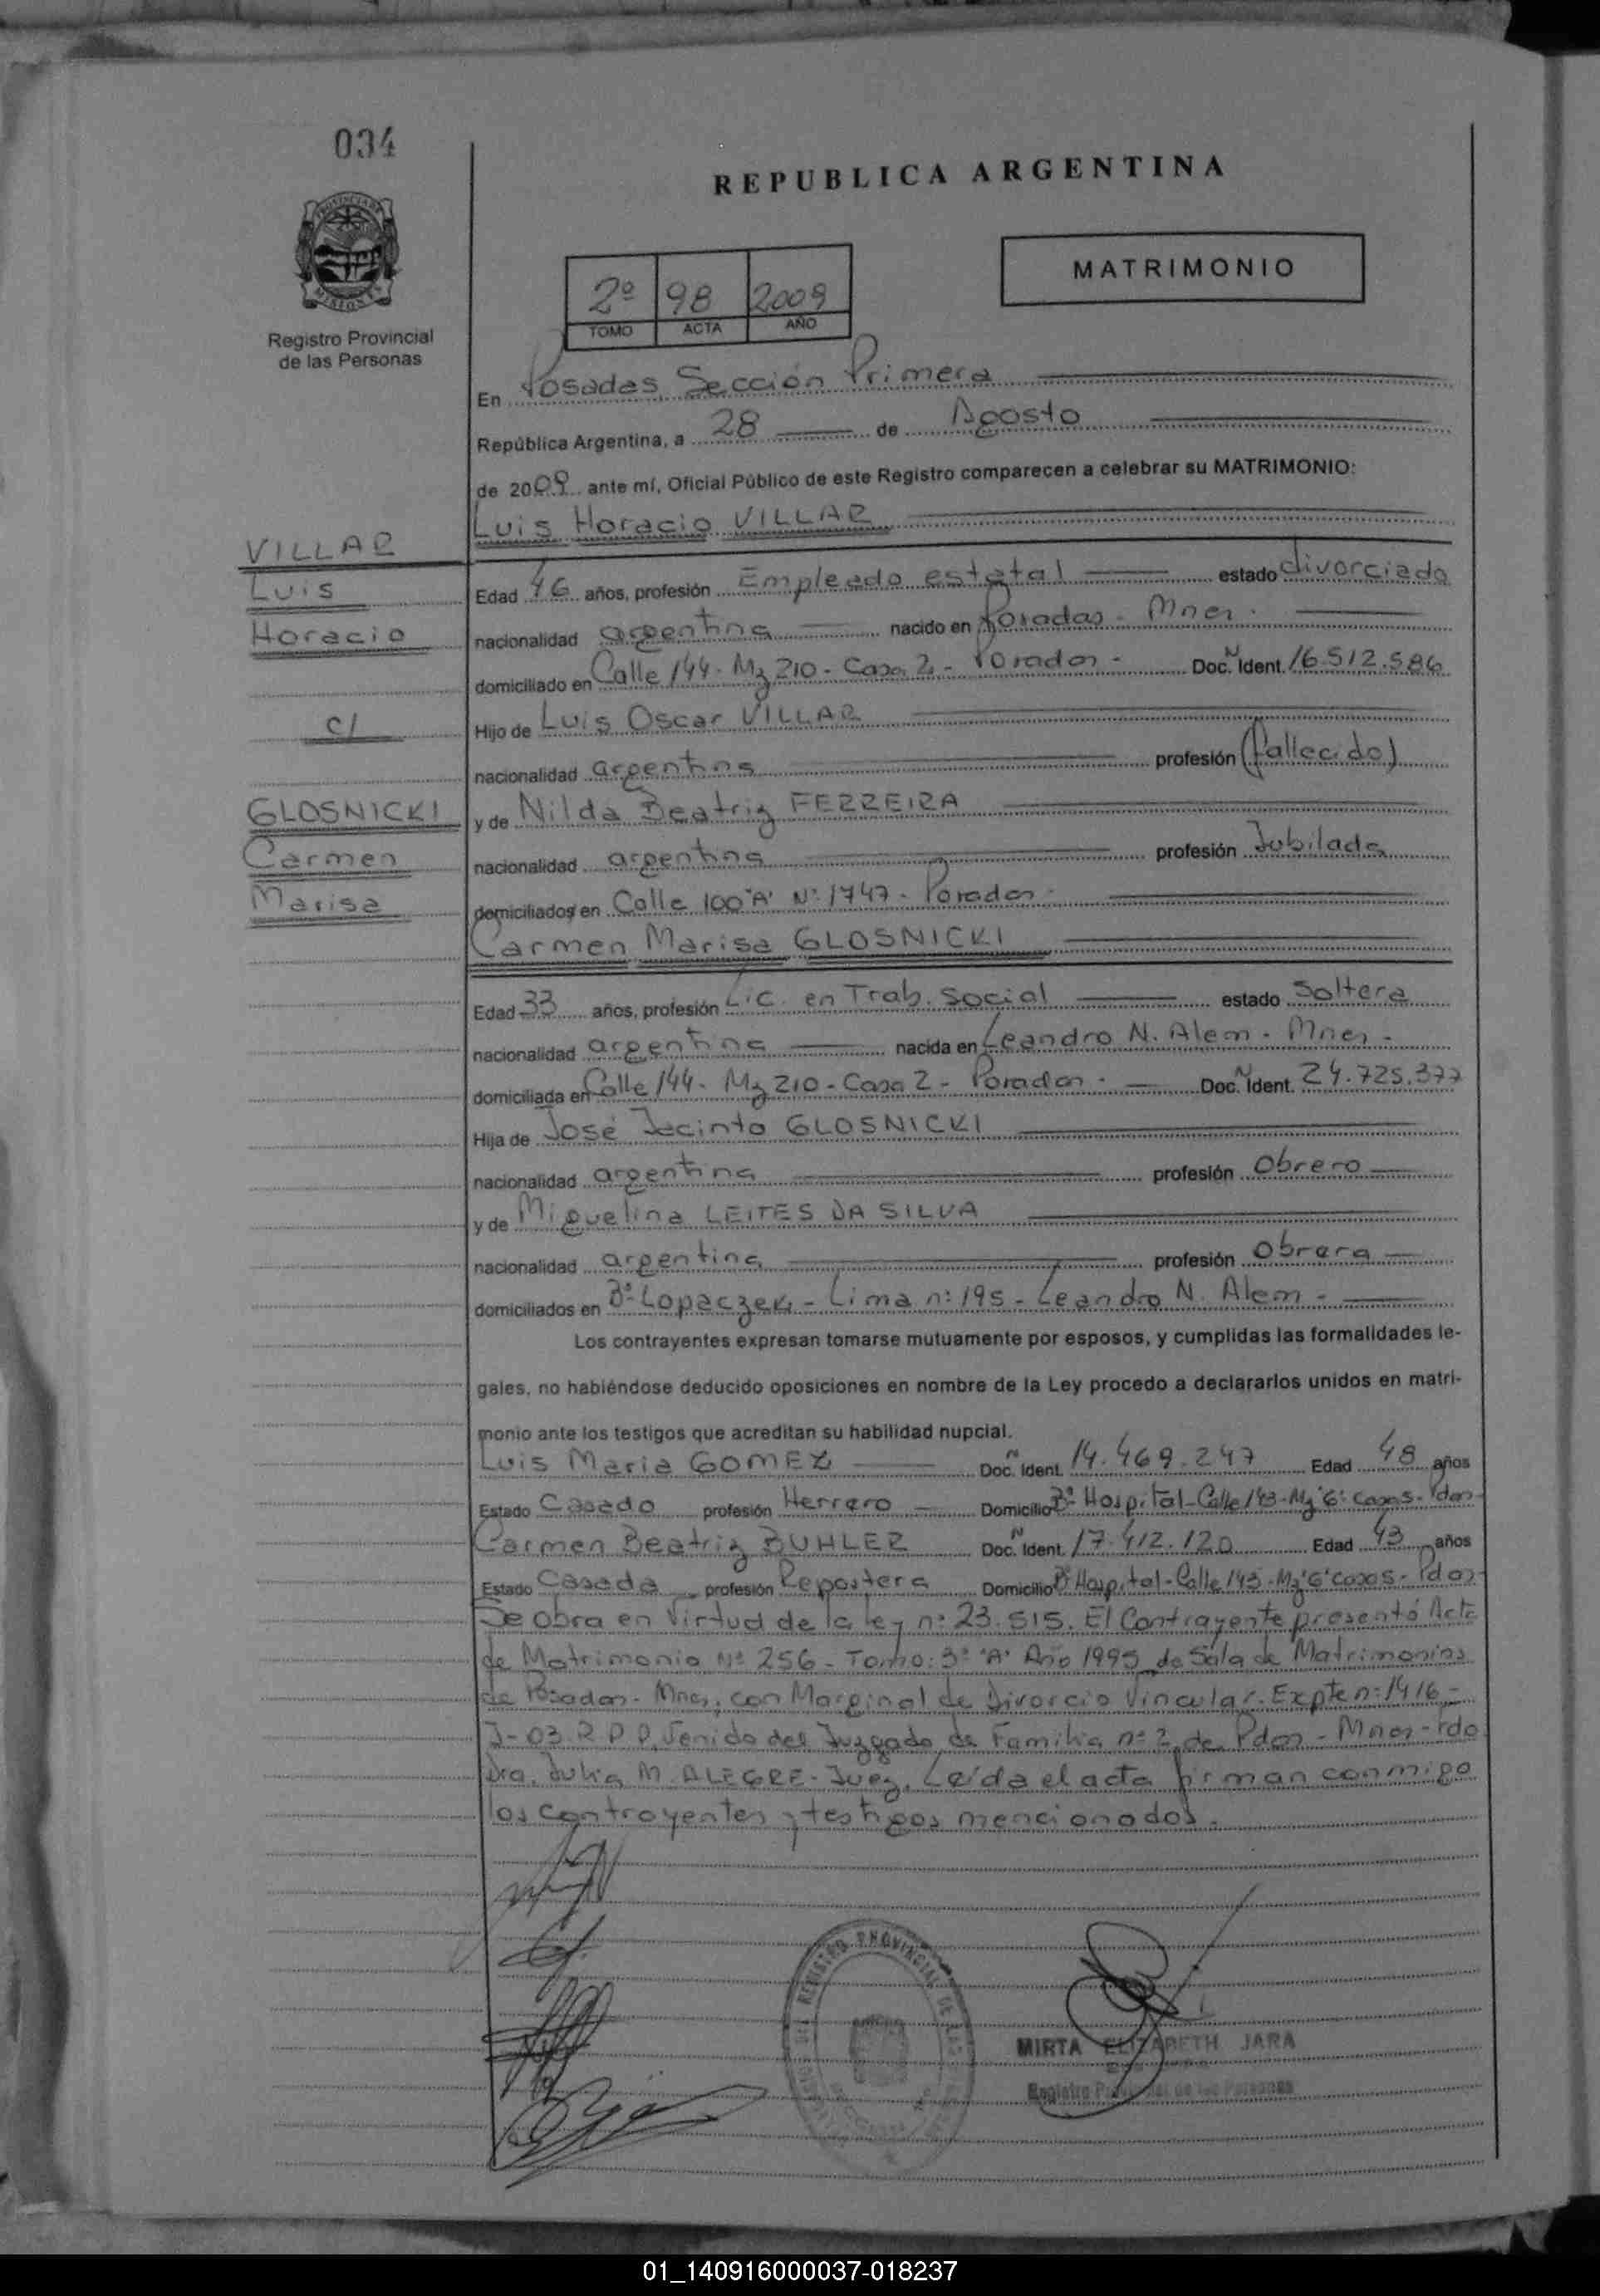 034
REPUBLICA ARGENTINA
MATRIMONIO
PROVINCIA DE MISIONES
Registro Provincial
de las Personas
2º 98 2009
TOMO ACTA AÑO
En Posadas, Sección Primera
República Argentina, a 28 de Agosto
de 2009 ante mí, Oficial Público de este Registro comparecen a celebrar su MATRIMONIO:
Luis Horacio VILLAR
VILLAR
Luis
Horacio
c/
GLOSNICKI
Carmen
Marisa
Edad 46 años, profesión Empleado estatal estado divorciado
nacionalidad argentina nacido en Posadas - Mnes.
domiciliado en Calle 144 - Mz 210 - Casa 2 - Posadas - Doc. N Ident. 16.512.586
Hijo de Luis Oscar VILLAR
nacionalidad argentina profesión (fallecido)
y de Nilda Beatriz FERREIRA
nacionalidad argentina profesión Jubilada
domiciliados en Calle 100 "A" Nº 1747 - Posadas -
Carmen Marisa GLOSNICKI
Edad 33 años, profesión Lic. en Trab. Social estado Soltera
nacionalidad argentina nacida en Leandro N. Alem - Mnes -
domiciliada en Calle 144 - Mz 210 - Casa 2 - Posadas - Doc. N Ident. 24.725.377
Hija de José Jacinto GLOSNICKI
nacionalidad argentina profesión Obrero
y de Miguelina LEITES DA SILVA
nacionalidad argentina profesión Obrera
domiciliados en Bº Lopaczek - Lima nº 195 - Leandro N. Alem -
Los contrayentes expresan tomarse mutuamente por esposos, y cumplidas las formalidades le-
gales, no habiéndose deducido oposiciones en nombre de la Ley procedo a declararlos unidos en matri-
monio ante los testigos que acreditan su habilidad nupcial.
Luis Maria GOMEZ Doc. N Ident. 14.469.247 Edad 48 años
Estado Casado profesión Herrero Domicilio Bº Hospital - Calle 143 - Mz "G" casa 5 - Pdas -
Carmen Beatriz BUHLER Doc. N Ident. 17.412.120 Edad 43 años
Estado Casada profesión Repostera Domicilio Bº Hospital - Calle 143 - Mz "G" casa 5 - Pdas -
Se obra en Virtud de la ley nº 23.515. El Contrayente presentó Acta
de Matrimonio Nº 256 - Tomo: 3º "A" Año 1995 de Sala de Matrimonios
de Posadas - Mnes, con Marginal de Divorcio Vincular. Expte nº 1416 -
J-03 R P P, Venido del Juzgado de Familia nº 2 de Pdas - Mnes - Fdo
Dra. Julia M. ALEGRE - Juez. Leída el acta firman conmigo
los contrayentes y testigos mencionados.
REGISTRO PROVINCIAL DE LAS
MIRTA ELIZABETH JARA
Registro Provincial de las Personas
01_140916000037-018237